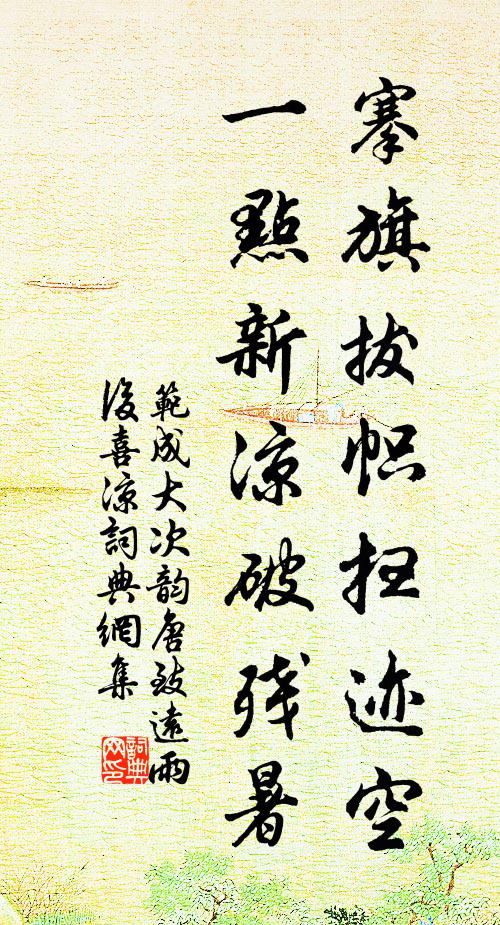 搴旗拔帜扫迹空
一點新凉破残暑
範成大次韵唐致遠雨
後喜凉詞典網集
詞典
网印